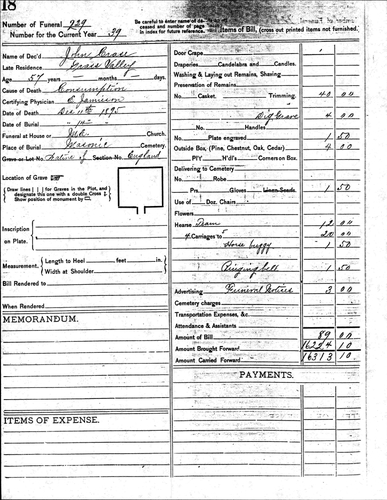 18
Number of Funeral 929
Number for the Current Year 39
Be careful to enter number of deceased and number of page in index for future reference.
Items of Bill, (cross out printed items not furnished.
Name of Dec'd John
Late Residence Grass Valley
Age 57 years months days
Cause of Death Consumption
Certifying Physician C Jamison
Date of Death Dec 11th 1895
Date of Burial
Funeral at House or Church.
Place of Masonic Cemetery.
Grave or Lot No. Native of Section No. England
Location of Grave
Draw lines for Graves in the Plot, and designate this one with a double Cross
Show position of monument by
Inscription on Plate.
Measurement. Length to Heel feet in.
Width at Shoulder
Bill Rendered to
When Rendered
MEMORANDUM.
ITEMS OF EXPENSE.
Door Crape
Draperies Candelabra and Candles
Washing & Laying out Remains, Shaving
Preservation of Remains
No. Casket. Trimming. 40 00
Dig Grave 4 00
No. Handles
Plate engraved 1 50
Outside Box, (Pine, Chestnut, Oak, Cedar) 4 00
PIY H'd'l's Corners on Box.
Delivering to Cemetery
No. Robe
Prs. Gloves 1 50
Use of Doz. Chairs
Flowers
Hearse Team 12 00
4 Carriages to 5 20 00
Horse buggy 1 50
Ringing bell 1 50
Advertising Funeral Notices 3 00
Cemetery charges
Transportation Expenses, &c
Attendance & Assistants
Amount of Bill 89 00
Amount Brought Forward 16224 10
Amount Carried Forward 16313 10
PAYMENTS.